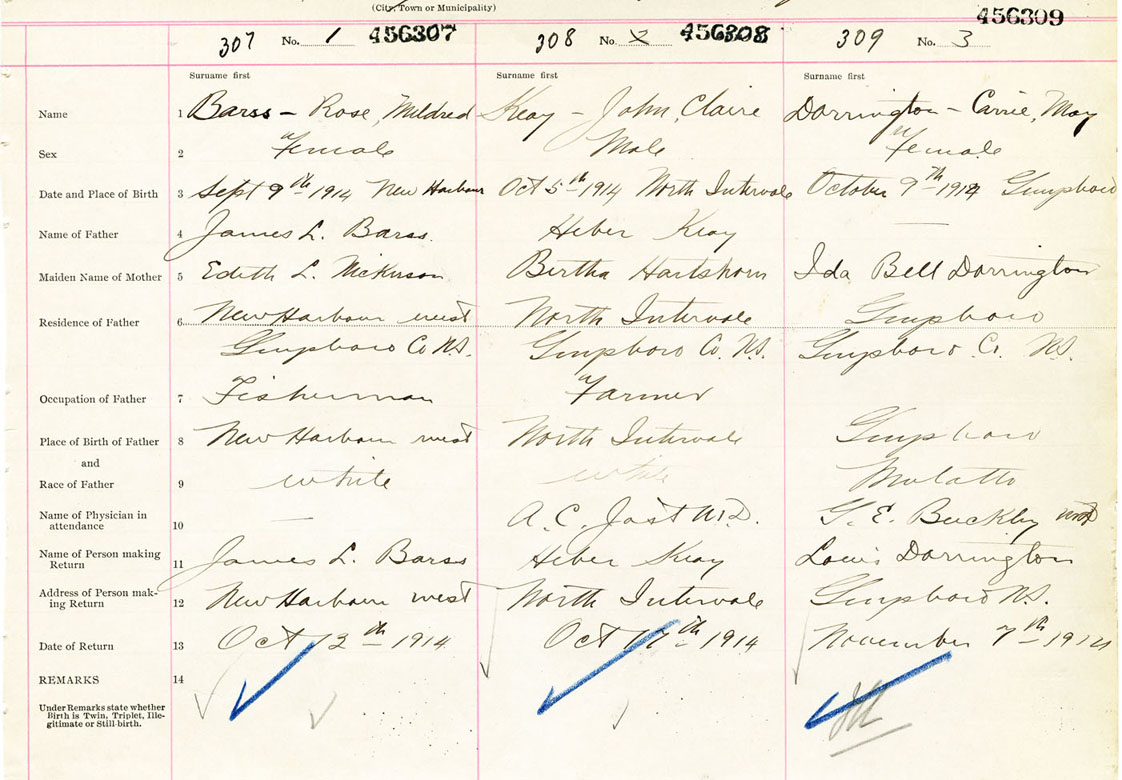 (City, Town or Municipality)
456309
307 No. 1 456307 308 No. 2 456308 309 No. 3
Surname first Surname first Surname first
Name 1 Barss - Rose, Mildred Keay - John, Claire Dorrington - Carrie, May
Sex 2 Female Male Female
Date and Place of Birth 3 Sept 9th 1914 New Harbour Oct 5th 1914 North Intervale October 9th 1914 Guysboro
Name of Father 4 James L. Barss. Heber Keay —
Maiden Name of Mother 5 Edith L. Nickerson Bertha Hartshorn Ida Bell Dorrington
Residence of Father 6 New Harbour west North Intervale Guysboro
Guysboro Co N.S. Guysboro Co. N.S. Guysboro Co. N.S.
Occupation of Father 7 Fisherman Farmer
Place of Birth of Father 8 New Harbour west North Intervale Guysboro
and
Race of Father 9 white white Mulatto
Name of Physician in
attendance 10 — A. C. Jost M.D. G. E. Buckley
Name of Person making
Return 11 James L. Barss Heber Keay Louis Dorrington
Address of Person mak-
ing Return 12 New Harbour west North Intervale Guysboro N.S.
Date of Return 13 Oct 12th 1914 Oct 17th 1914 November 7th 1914
REMARKS 14
Under Remarks state whether
Birth is Twin, Triplet, Ille-
gitimate or Still-birth.